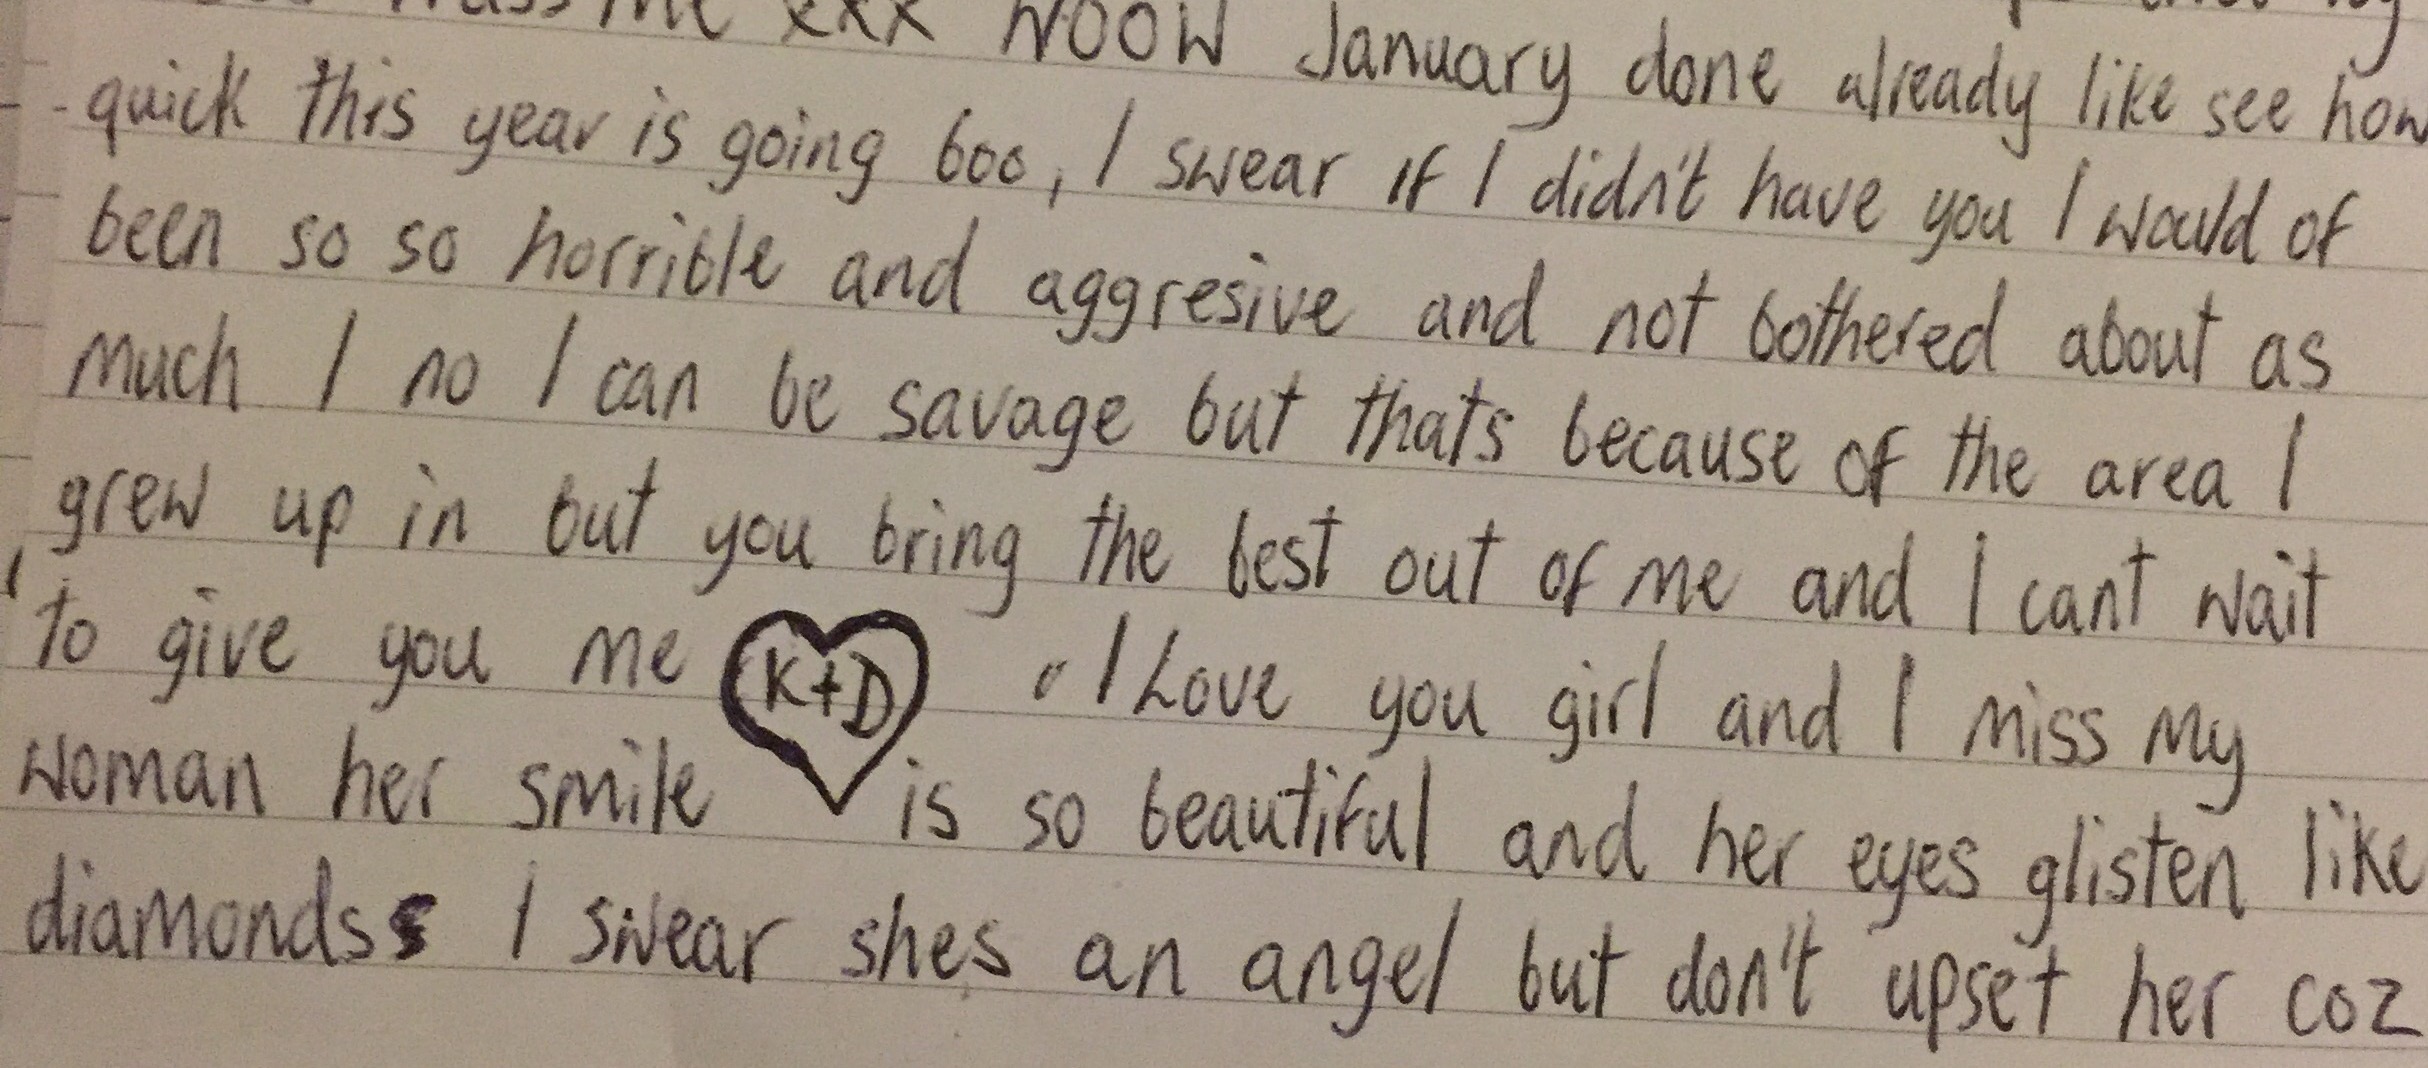 me xxx WOOW January done already like see how
quick this year is going boo, I swear if I didn't have you I would of
been so so horrible and aggresive and not bothered about as
much I no I can be savage but thats because of the area I
grew up in but you bring the best out of me and I cant wait
to give you me K+D I Love you girl and I miss my
woman her smile is so beautiful and her eyes glisten like
diamondss I swear shes an angel but don't upset her coz